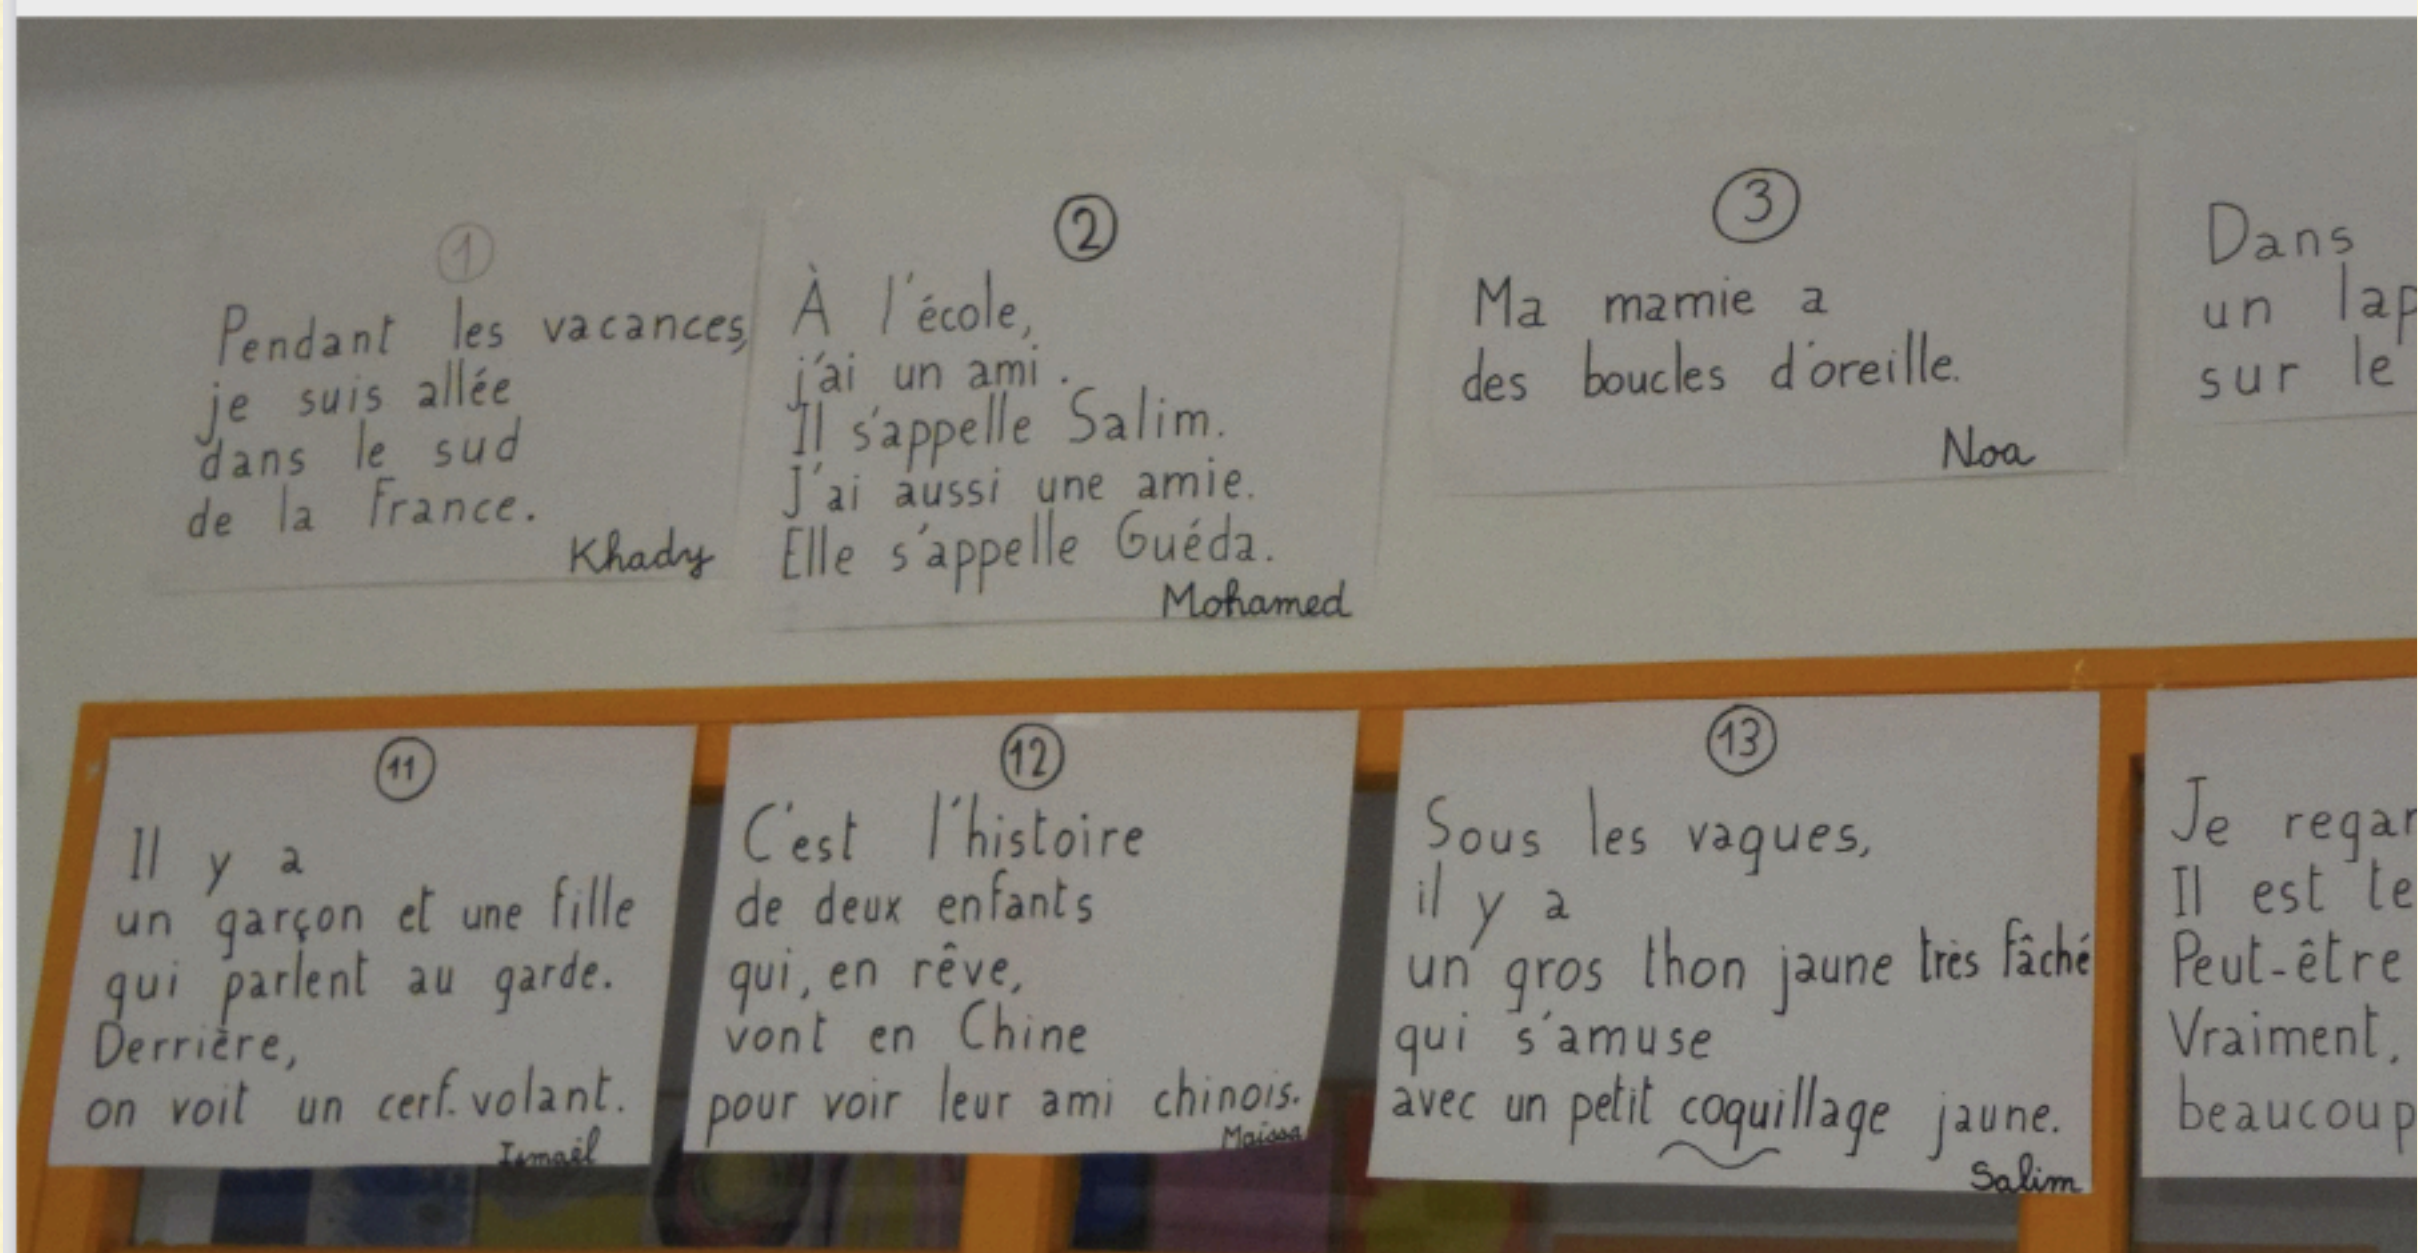 ①
Pendant les vacances,
je suis allée
dans le sud
de la France.
Khady
②
À l'école,
j'ai un ami.
Il s'appelle Salim.
J'ai aussi une amie.
Elle s'appelle Guéda.
Mohamed
③
Ma mamie a
des boucles d'oreille.
Noa
Dans
un lap
sur le
⑪
Il y a
un garçon et une fille
qui parlent au garde.
Derrière,
on voit un cerf-volant.
Ismaël
⑫
C'est l'histoire
de deux enfants
qui, en rêve,
vont en Chine
pour voir leur ami chinois.
Maïssa
⑬
Sous les vagues,
il y a
un gros thon jaune très fâché
qui s'amuse
avec un petit coquillage jaune.
Salim
Je regar
Il est te
Peut-être
Vraiment,
beaucoup